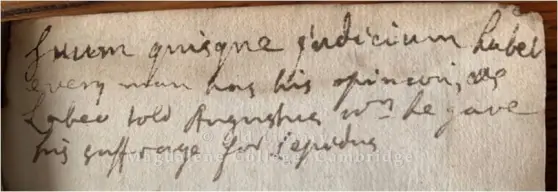 suum quisque judicium habet
every man has his opinion, as
Labeo told Augustus wn he gave
his suffrage for Lepidus
Magdalene College, Cambridge